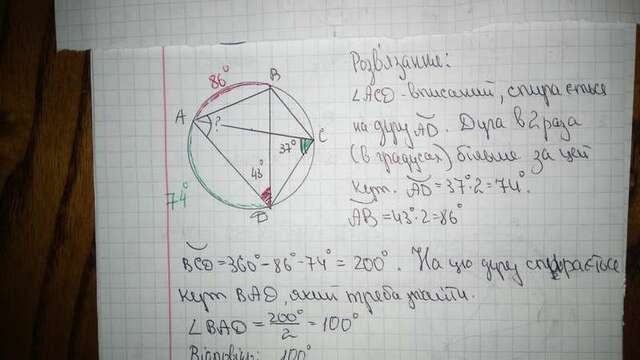 Розв'язання:
86°
B
∠ACD - вписаний, спирається
A
?
C
на дугу AD. Дуга в 2 раза
37°
(в градусах) більше за цей
43°
74°
кут. AD = 37°·2 = 74°.
D
AB = 43°·2 = 86°
BCD = 360° - 86° - 74° = 200°. На цю дугу спирається
кут BAD, який треба знайти.
∠BAD = 200°/2 = 100°
Відповідь: 100°